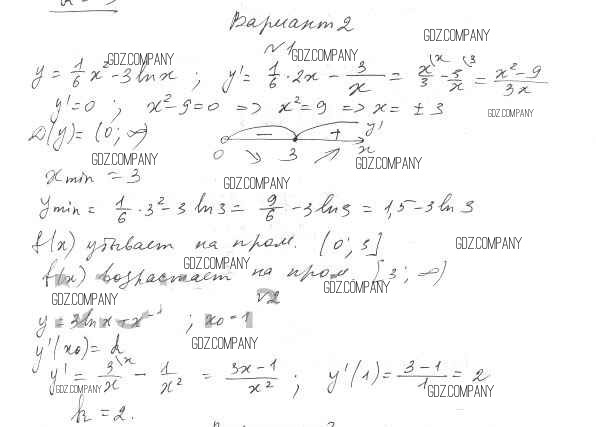 Вариант 2
GDZ.COMPANY
№1
GDZ.COMPANY
y = 1/6 x² - 3 ln x ; y' = 1/6 · 2x - 3/x = x/3 \x - 3/x \3 = (x² - 9)/3x
y' = 0 ; x² - 9 = 0 => x² = 9 => x = ± 3
GDZ.COMPANY
GDZ.COMPANY
GDZ.COMPANY
D(y) = (0; ∞) - + y'
0 3 x
GDZ.COMPANY
GDZ.COMPANY
x min = 3
GDZ.COMPANY
y min = 1/6 · 3² - 3 ln 3 = 9/6 - 3 ln 3 = 1,5 - 3 ln 3
f(x) убывает на пром. (0; 3]
GDZ.COMPANY
GDZ.COMPANY
f(x) возрастает на пром [3; ∞)
GDZ.COMPANY
GDZ.COMPANY
№2
y = 3 ln x + x⁻¹ ; x₀ = 1
y'(x₀) = k
GDZ.COMPANY
y' = 3/x \x - 1/x² = (3x - 1)/x² ; y'(1) = (3 - 1)/1 = 2
GDZ.COMPANY
GDZ.COMPANY
k = 2.